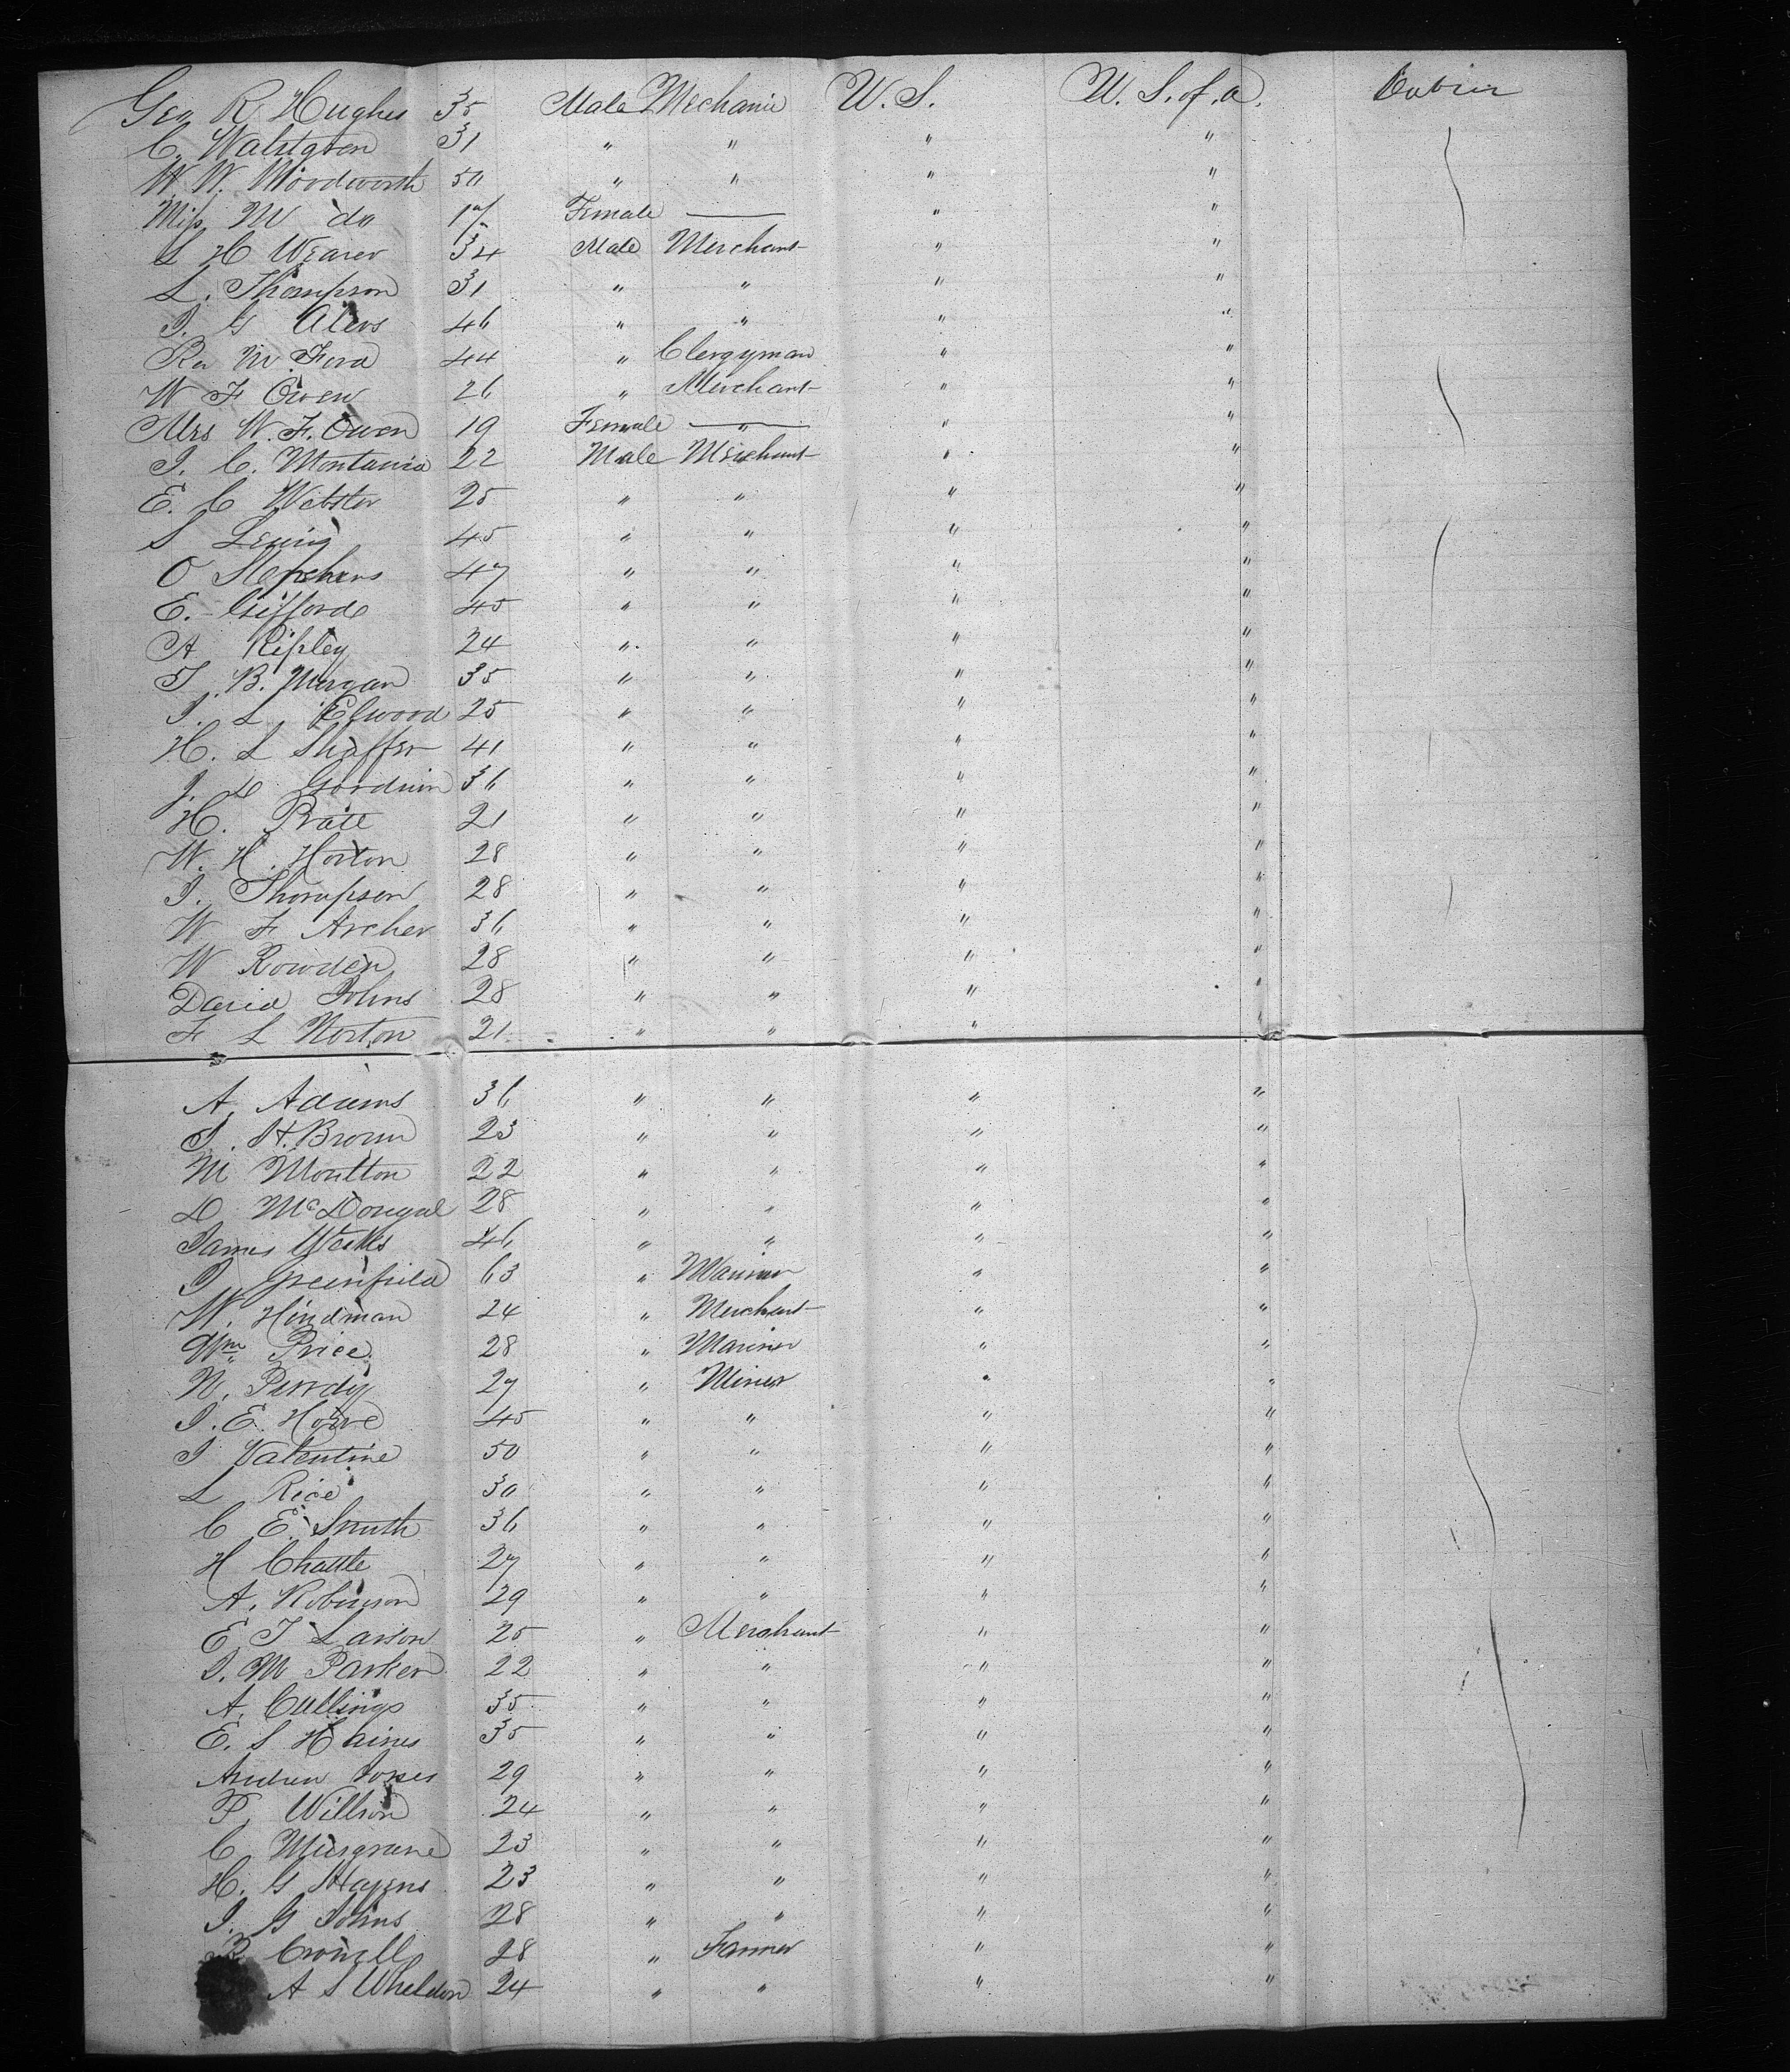 Geo R. Hughes 35 Male Mechanic U.S. U.S. of. a. Cabin
C. 31 " " " "
W. W. Woodworth 50 " " " "
Miss M do 17 Female — " "
L H Weaver 34 Male Merchant " "
L. Thompson 31 " " " "
J. G Alers 46 " " " "
Rev M. Ford 44 " Clergyman " "
W F Owen 26 " Merchant " "
Mrs W. F. Owen 19 Female — " "
J. C. Montania 22 Male Merchant " "
E. C Webster 25 " " " "
S 45 " " " "
O Stephens 47 " " " "
E. Gifford 45 " " " "
A Ripley 24 " " " "
T. B. Morgan 35 " " " "
J. L. Elwood 25 " " " "
H. L Shaffer 41 " " " "
J. L Goodwin 36 " " " "
H. Pratt 21 " " " "
W. H. Horton 28 " " " "
J. Thompson 28 " " " "
W F Archer 36 " " " "
W Rowden 28 " " " "
David Johns 28 " " " "
F L Norton 21 " " " "
A. Adams 36 " " " "
J. H. Brown 23 " " " "
M Moulton 22 " " " "
D McDougal 28 " " " "
James Weeks 46 " " " "
J Greenfield 63 " Mariner " "
W. Hindman 24 " Merchant " "
Wm Price 28 " Mariner " "
N. Purdy 27 " Miner " "
J. E. Howe 45 " " " "
J Valentine 50 " " " "
L Rice 30 " " " "
C E. Smith 36 " " " "
H Chatte 27 " " " "
A. Robinson 29 " " " "
E T Larson 25 " Merchant " "
J. M Parker 22 " " " "
A. Cullings 35 " " " "
E. S Haines 35 " " " "
Andrew Jones 29 " " " "
P. Willson 24 " " " "
C Musgrave 23 " " " "
H. G 23 " " " "
J. G Johns 28 " " " "
R Crowell 28 " Farmer " "
A S Wheldon 24 " " " "